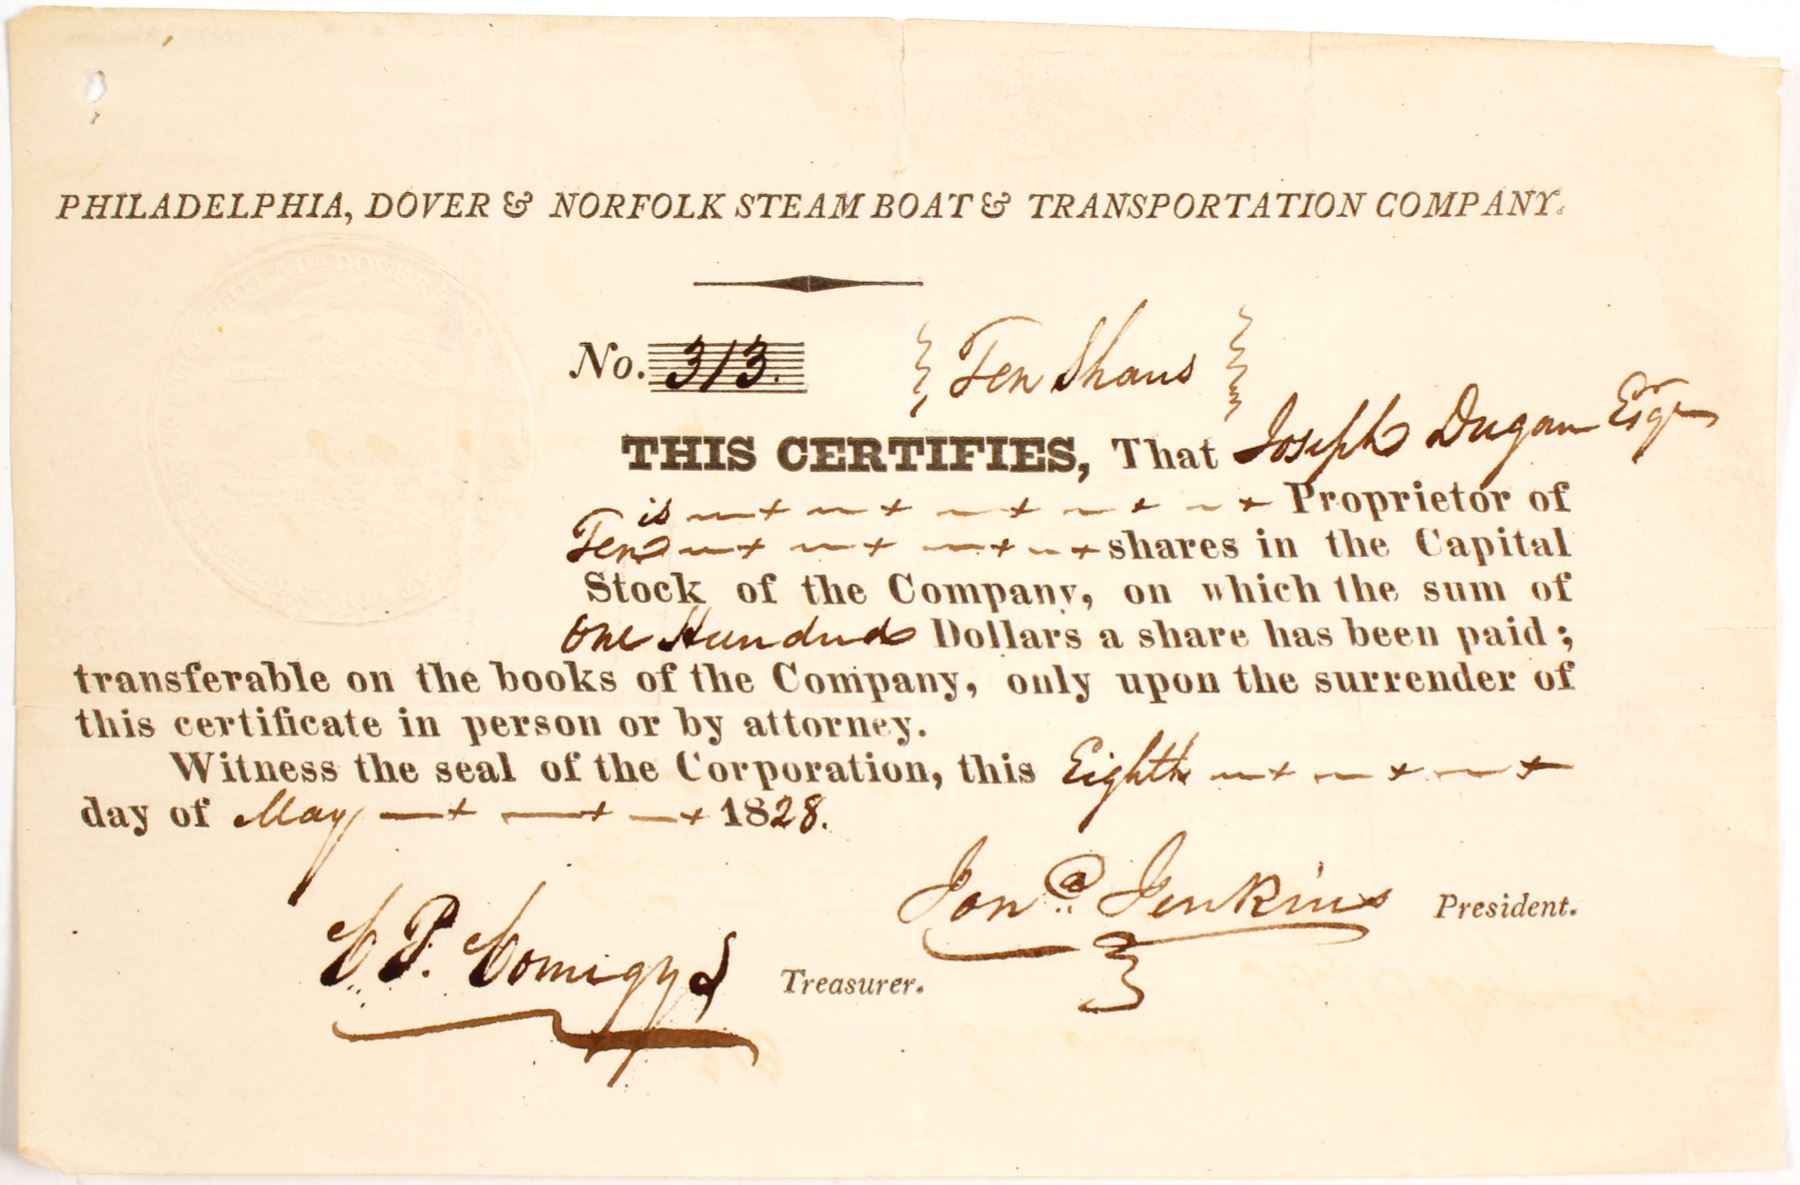 PHILADELPHIA, DOVER & NORFOLK STEAM BOAT & TRANSPORTATION COMPANY.
No. 313. { Ten Shares }
THIS CERTIFIES, That Joseph Dugan Esqr
is Proprietor of
Ten shares in the Capital
Stock of the Company, on which the sum of
One Hundred Dollars a share has been paid;
transferable on the books of the Company, only upon the surrender of
this certificate in person or by attorney.
Witness the seal of the Corporation, this Eighth
day of May 1828.
Jona. Jenkins President.
C. P. Comigys Treasurer.